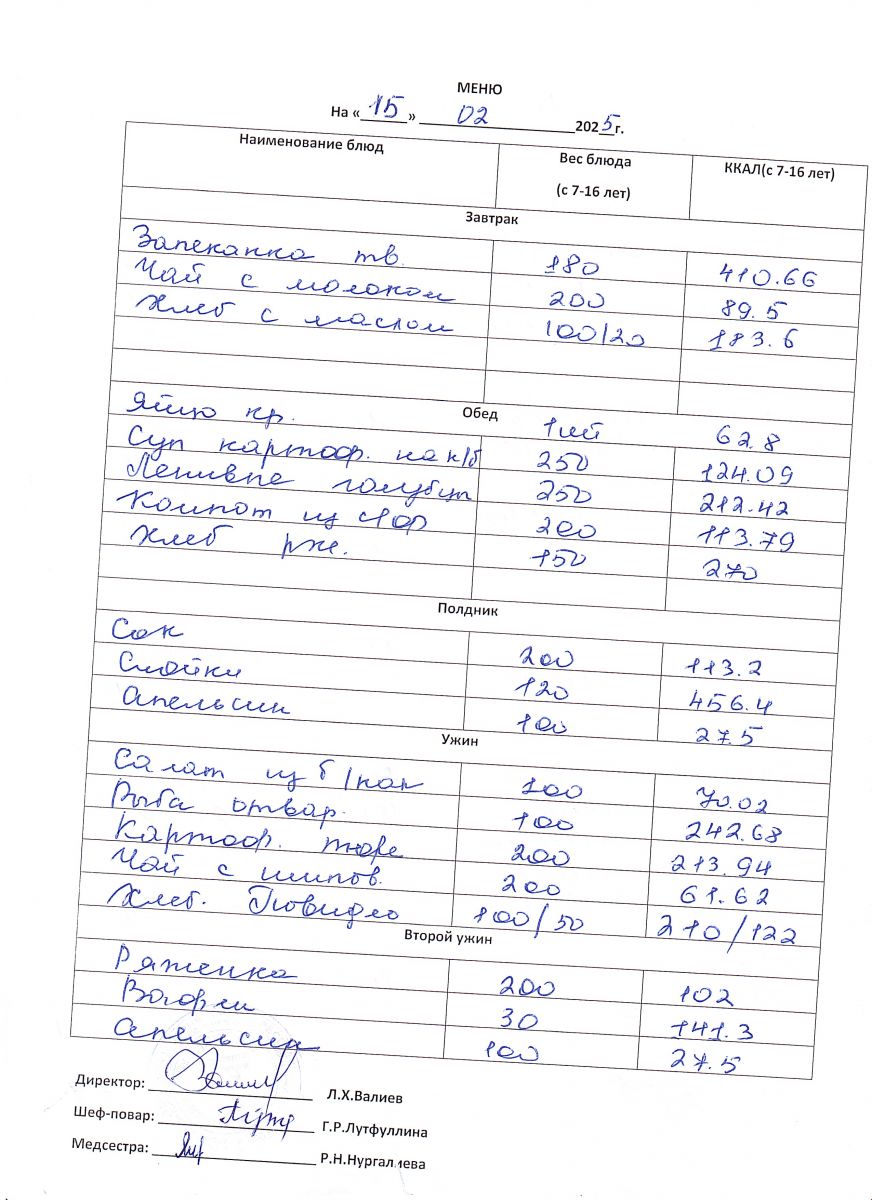 МЕНЮ
На «15» 02 2025г.
Наименование блюд Вес блюда (с 7-16 лет) ККАЛ(с 7-16 лет)
Завтрак
Запеканка тв. 180 410.66
Чай с молоком 200 89.5
Хлеб с маслом 100/20 183.6
Обед
Яйцо кр. 1шт 62.8
Суп картоф. на к/б 250 124.09
Ленивые голубцы 250 212.42
Компот из с/фр 200 113.79
Хлеб рж. 150 270
Полдник
Сок 200 113.2
Слойки 120 456.4
Апельсин 100 27.5
Ужин
Салат из б/кап 100 70.02
Рыба отвар. 100 242.68
Картоф. пюре 200 213.94
Чай с шипов. 200 61.62
Хлеб. Повидло 100/50 210/122
Второй ужин
Ряженка 200 102
Вафли 30 141.3
Апельсин 100 27.5
Директор: Л.Х.Валиев
Шеф-повар: Г.Р.Лутфуллина
Медсестра: Р.Н.Нургалиева